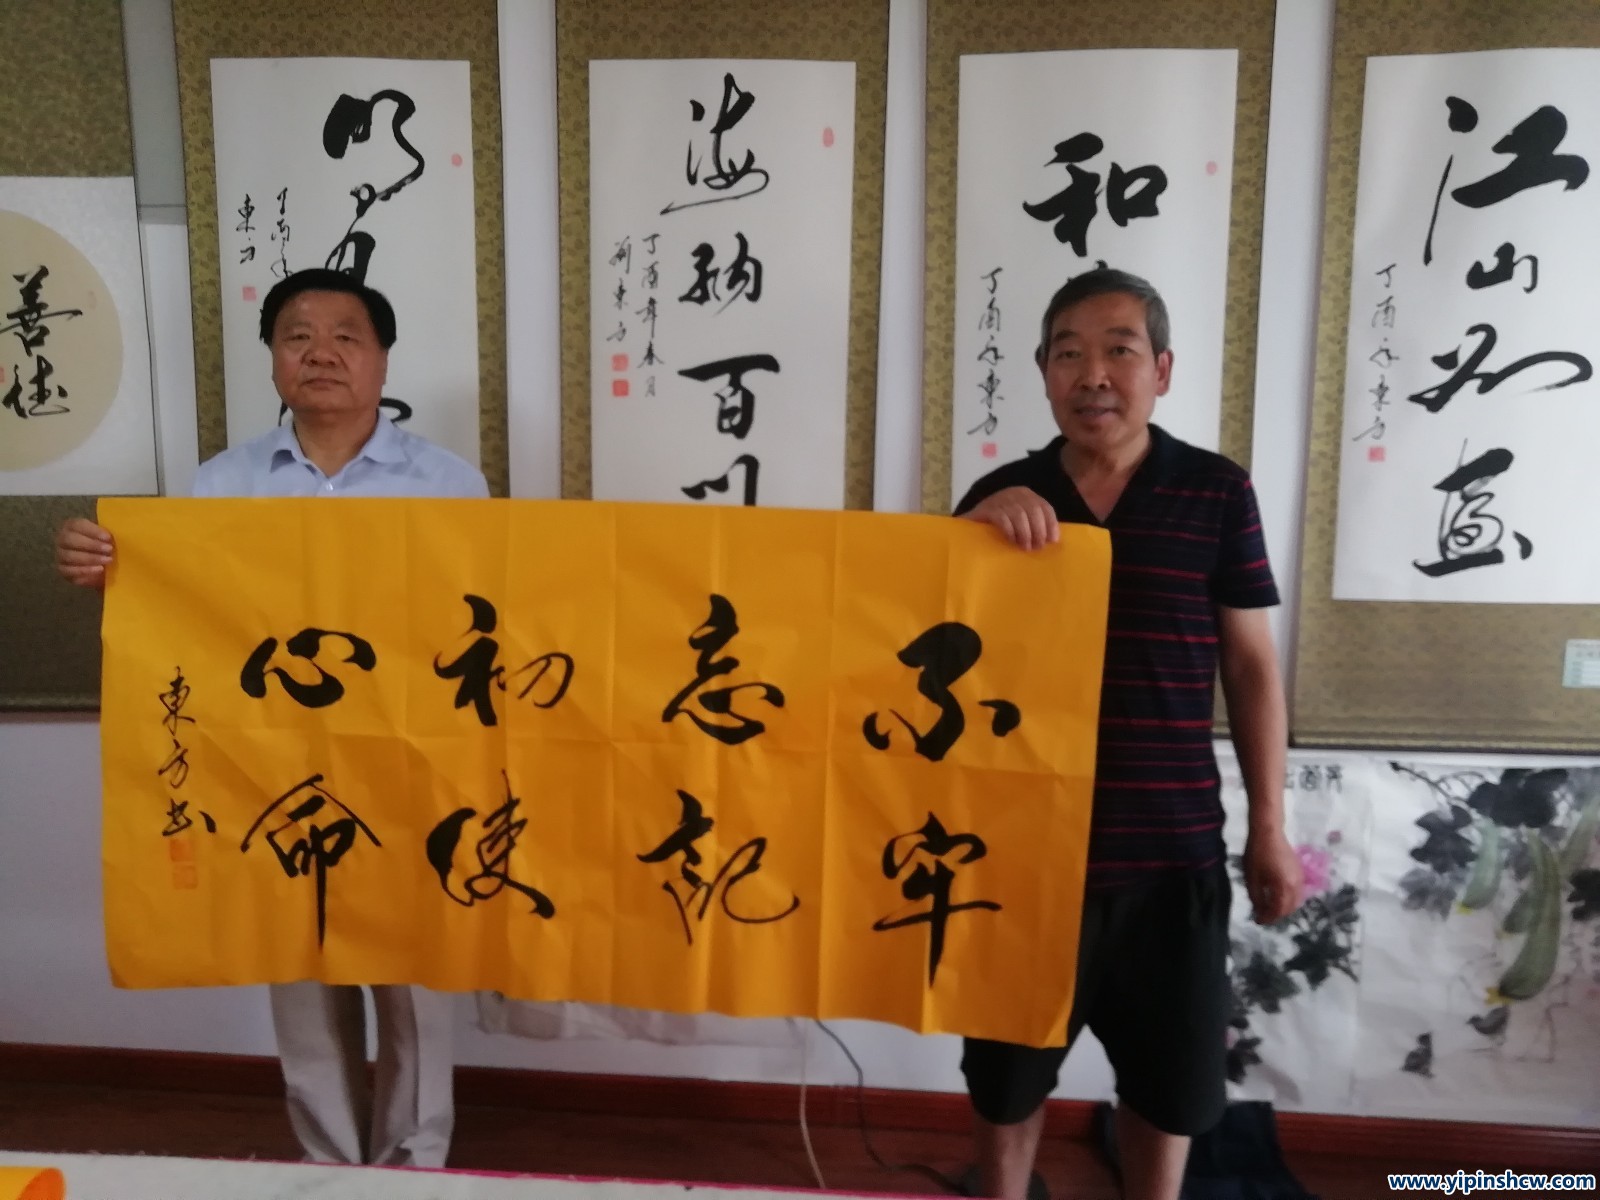 善德
明月
丁酉年
東方
海納百川
丁酉年春月
劉東方
和
丁酉年東方
江山如画
丁酉年東方
不忘初心
牢記使命
東方书
www.yipinshcw.com